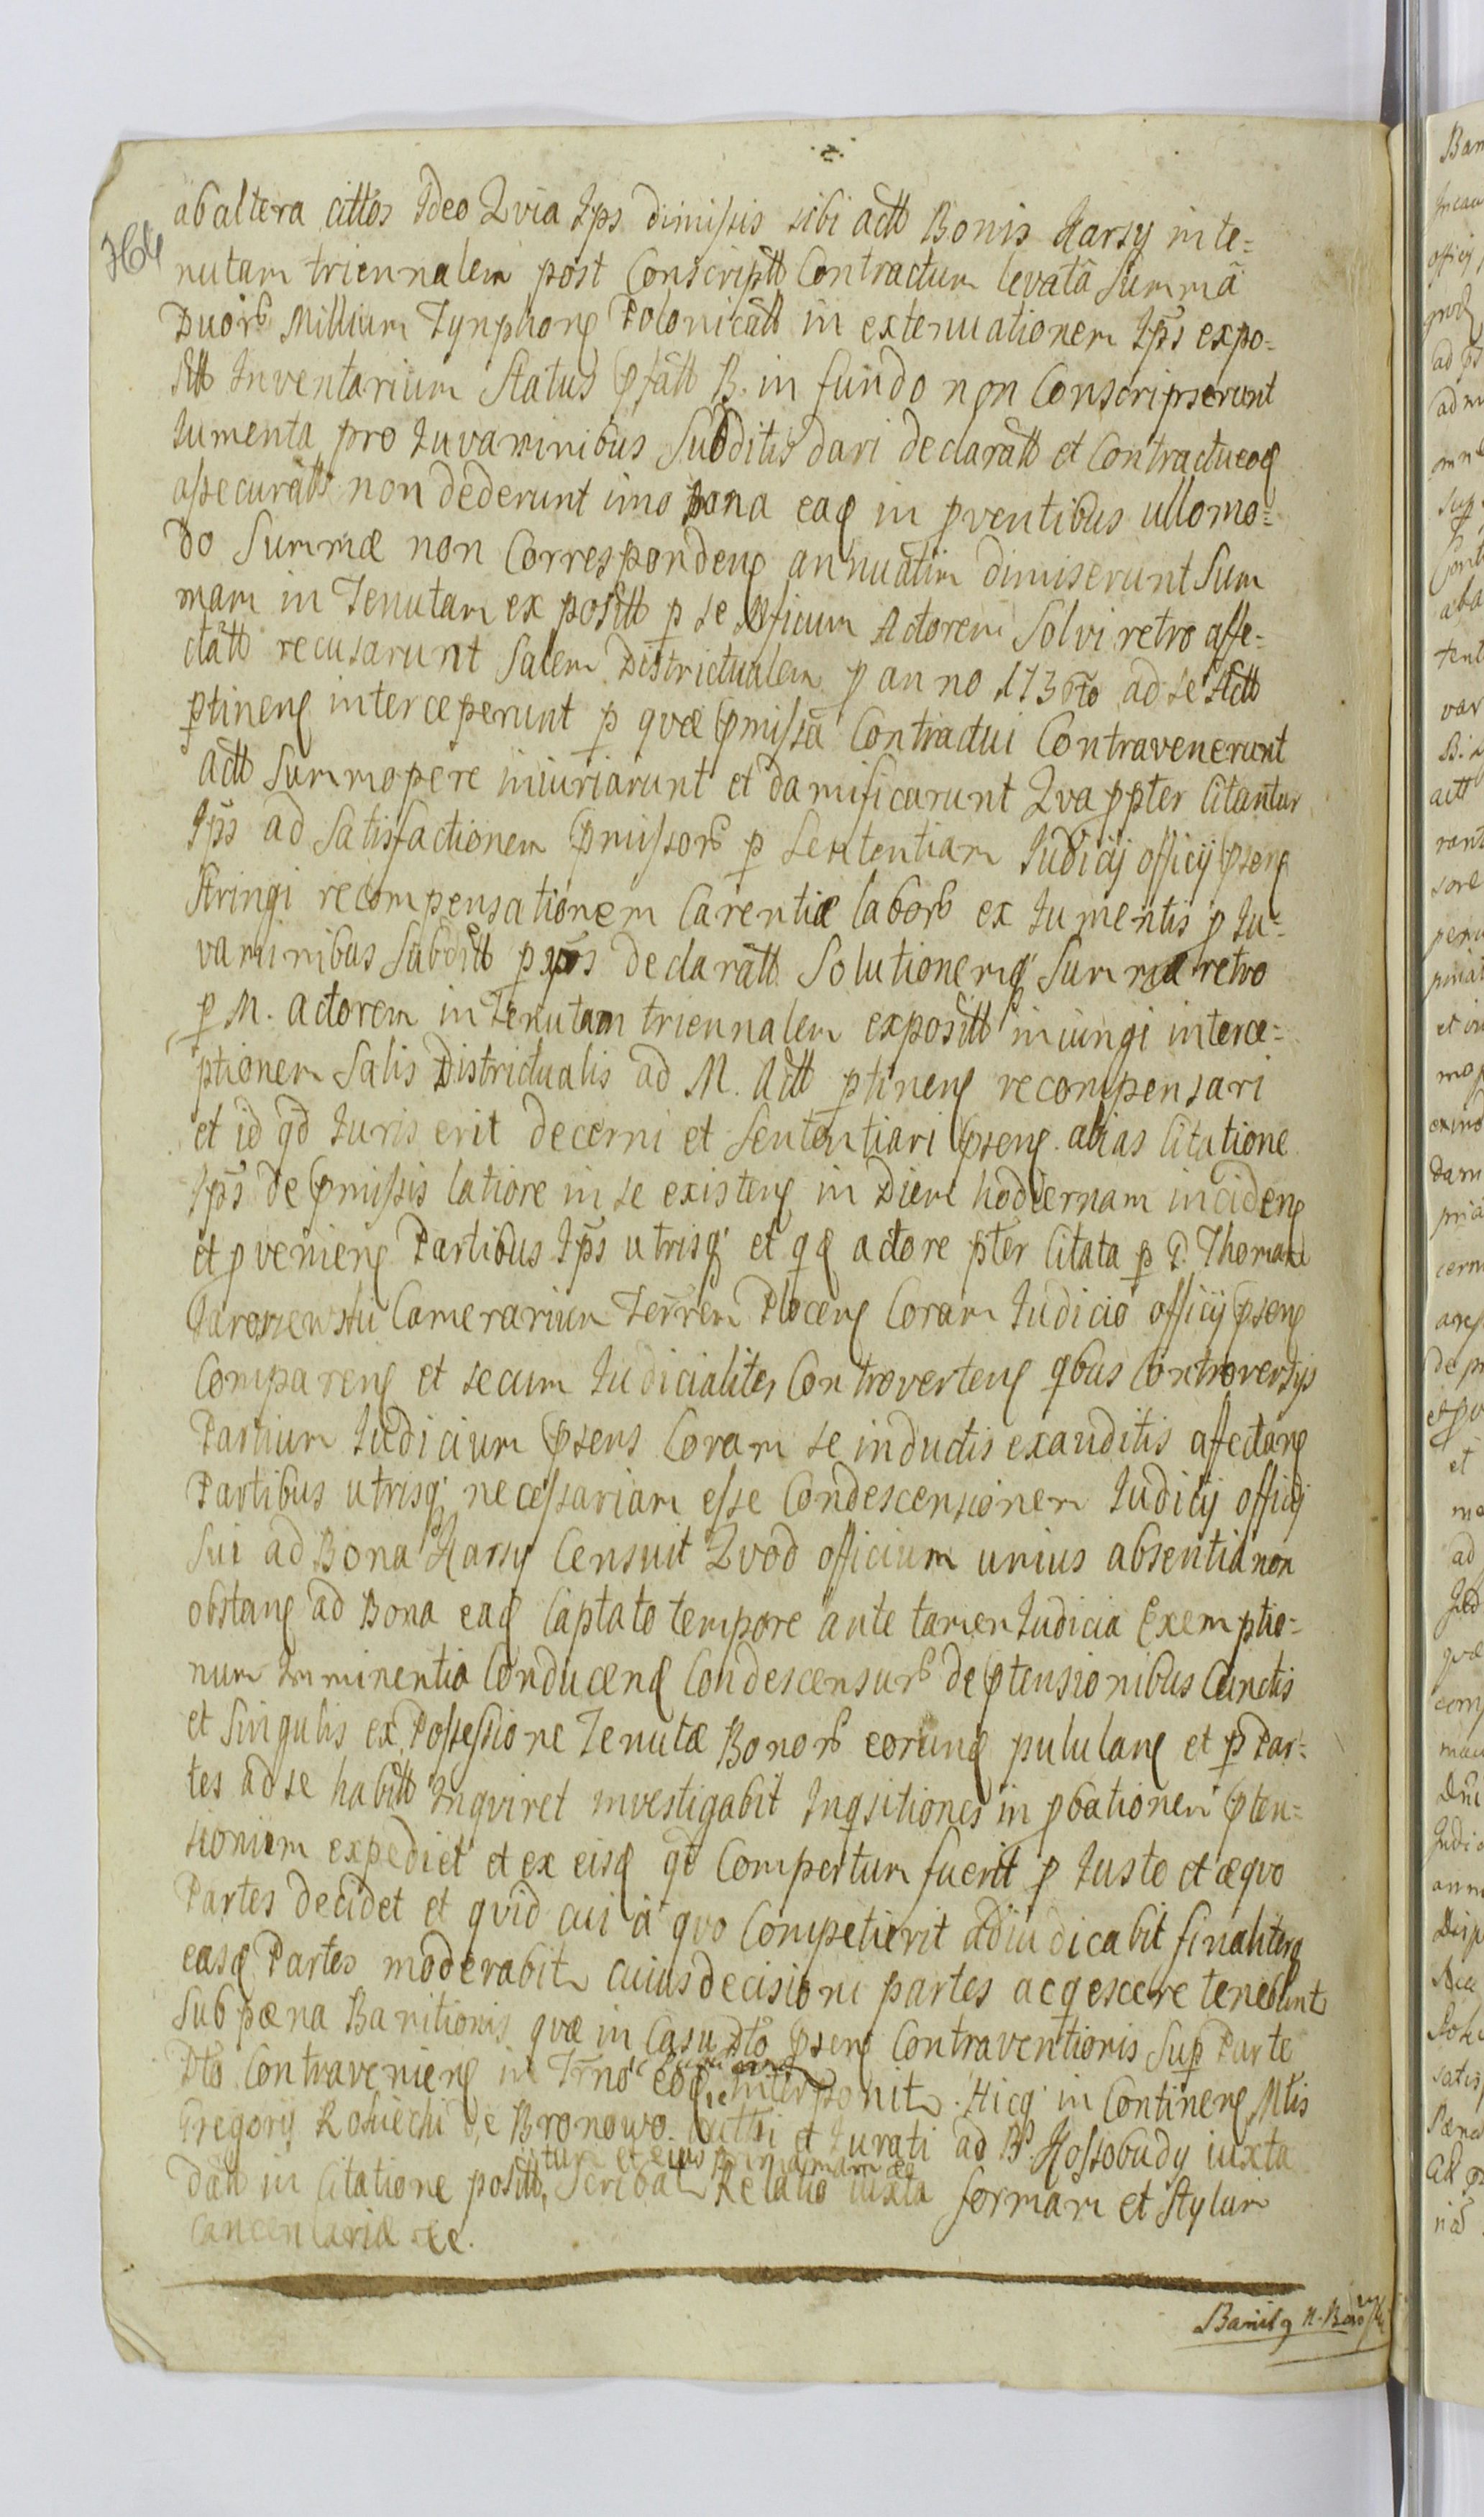 ab altera cittos Ideo Qvia Ips dimissis sibi actt Bonis Karsy in te=
nutam triennalem post Conscriptt Contractum levatâ Summâ
Duorū Millium Tynphonꝭ Polonicatt in extenuationem Ips̄ expo=
sitt Inventarium Status p̄fatt B. in fundo non Conscripserunt
Iumenta pro Iuvaminibus Subditis dari declaratt et Contractu eoꝗ
assecuratt non dederunt imo Bona eaꝗ in pventibus ullomo=
do Summæ non Correspondenꝭ annuatim dimiserunt Sum
mam in Tenutam ex positt p se Mficum Actorem Solvi retro affe=
ctatt recusarunt Salem Districtualem p anno 1736to ad se Actt
ptinenꝭ interceperunt p qvæ p̄missa Contractui Contravenerunt
Actt Summopere iniuriarunt et damificarunt Qvappter Citantur
Ips̄ ad Satisfactionem p̄missorū p Sententiam Iudicij officij p̄senꝭ
Stringi recompensationem Carentiæ laborū ex Iumentis p Iu=
vaminibus Subditt p ips̄ declaratt Solutionemq́ Summæ retro
p M. Actorem in Tenutam triennalem expositt iniungi interce=
ptionem Salis Districtualis ad M. Actt ptinenꝭ recompensari
et id qd Iuris erit decerni et Sententiari p̄senꝭ alias Citatione
Ips̄ de p̄missis latiore in se existenꝭ in Diem hodiernam incidenꝭ
et pvenienꝭ Partibus Ips̄ utrisq́ et qꝗ actore pter Citata p D. Thomam
Camerarium Terrem Plocenꝭ Coram Iudicio officij p̄senꝭ
Comparenꝭ et secum Iudicialiter Controvertenꝭ qbus Controversijs
Partium Iudicium p̄sens Coram se inductis exauditis affectanꝭ
Partibus utrisq́ necessariam esse Condescensionem Iudicij officij
Sui ad Bona Karsy Censuit Qvod officium unius absentia non
obstanꝭ ad Bona eaꝗ Captato tempore ante tamen Iudicia Exemptio=
num Imminentia Conducenꝗ Condescensurū de p̄tensionibus Cunctis
et Singulis ex Possessione Tenutæ Bonorū eorunꝗ pululanꝭ et p Par=
tes ad se habitt Inqviret investigabit Inqsitiones in pbationem p̄ten=
sionum expediet et ex eisꝗ qd Compertum fuerit p Iusto et æqvo
Partes decidet et qvid cui à qvo Competierit adiudicabit finaliterꝗ
easꝗ Partes moderabit cuius decisioni partes acqescere tenebunt
Sub pæna Banitionis qvæ in Casu dto p̄senꝭ Contraventionis Sup Parte
Dto Contravenienꝭ in Tr̄no eoꝗ Interponit. Hicq́ in Continenꝭ Mtis
Gregorij de Bronowo et Iurati ad B. Kossobudy iuxta
dat in Citatione positt Scribat Relatio iuxta formam et Stylum
Cancellariæ &c.